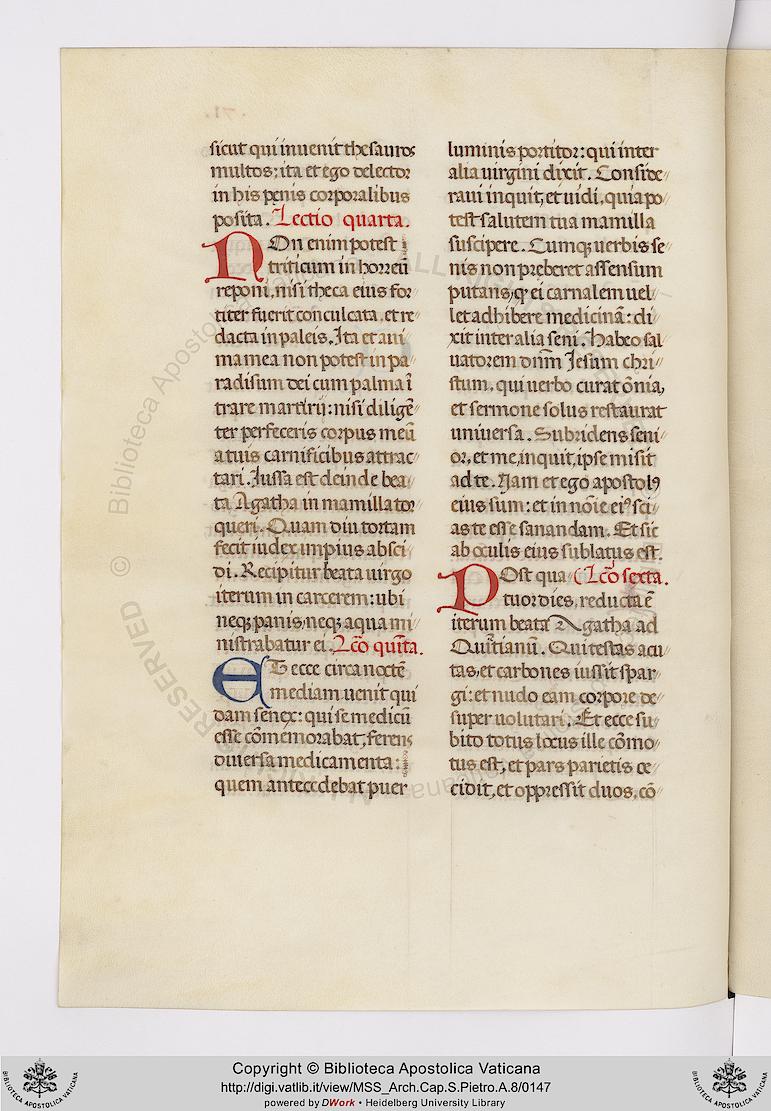 sicut qui inuenit thesauros
multos; ita et ego delector
in his penis corporalibus
posita. Lectio quarta.
Non enim potest
triticum in horreū
reponi, nisi theca eius for
titer fuerit conculcata, et re
dacta in paleis. Ita et ani
ma mea non potest in pa
radisum dei cum palma ī
trare martirij: nisi diligē
ter perfeceris corpus meū
a tuis carnificibus attrac
tari. Iussa est deinde bea
ta Agatha in mamilla tor
queri. Quam diu tortam
fecit iudex impius absci
di. Recipitur beata uirgo
iterum in carcerem: ubi
neqꝫ panis, neqꝫ aqua mi
nistrabatur ei. Lcō quīta.
ET ecce circa noctē
mediam uenit qui
dam senex: qui se medicū
esse cōmemorabat, ferens
diuersa medicamenta:
quem antecedebat puer
luminis portitor: qui inter
alia uirgini dixit. Conside
raui inquit, et uidi, quia po
test salutem tua mamilla
suscipere. Cumqꝫ uerbis se
nis non preberet assensum
putans, qꝫ ei carnalem uel
let adhibere medicinā: di
xit inter alia seni. Habeo sal
uatorem dnm̄ Iesum chri
stum, qui uerbo curat ōnia,
et sermone solus restaurat
uniuersa. Subridens seni
or, et me, inquit, ipse misit
ad te. Nam et ego apostolꝰ
eius sum: et in nōie eiꝰ sci
as te esse sanandam. Et sic
ab oculis eius sublatus est.
Post qua (Lcō sexta.
tuor dies, reducta ē
iterum beata Agatha ad
Quītianū. Qui testas acu
tas, et carbones iussit spar
gi: et nudo eam corpore de
super uolutari. Et ecce su
bito totus locus ille cōmo
tus est, et pars parietis ce
cidit, et oppressit duos, cō
© Biblioteca Apostolica
Copyright © Biblioteca Apostolica Vaticana
http://digi.vatlib.it/view/MSS_Arch.Cap.S.Pietro.A.8/0147
powered by DWork • Heidelberg University Library